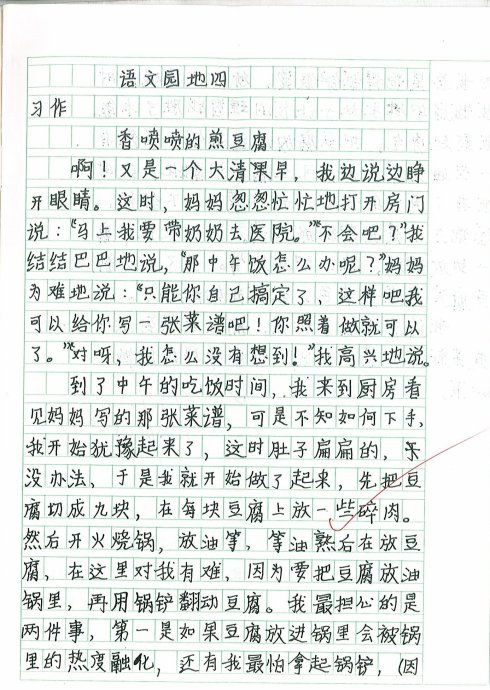 语文园地四
习作
香喷喷的煎豆腐
啊！又是一个大清早，我边说边睁
开眼睛。这时，妈妈忽忽忙忙地打开房门
说：“马上我要带奶奶去医院。”“不会吧？”我
结结巴巴地说，“那中午饭怎么办呢？”妈妈
为难地说：“只能你自己搞定了，这样吧我
可以给你写一张菜谱吧！你照着做就可以
了。”“对呀，我怎么没有想到！”我高兴地说。
到了中午的吃饭时间，我来到厨房看
见妈妈写的那张菜谱，可是不知如何下手，
我开始犹豫起来了，这时肚子扁扁的，
没办法，于是我就开始做了起来，先把豆
腐切成九块，在每块豆腐上放一些碎肉。
然后开火烧锅，放油等，等油熟后在放豆
腐，在这里对我有难，因为要把豆腐放油
锅里，再用锅铲翻动豆腐。我最担心的是
两件事，第一是如果豆腐放进锅里会被锅
里的热度融化，还有我最怕拿起锅铲，（因